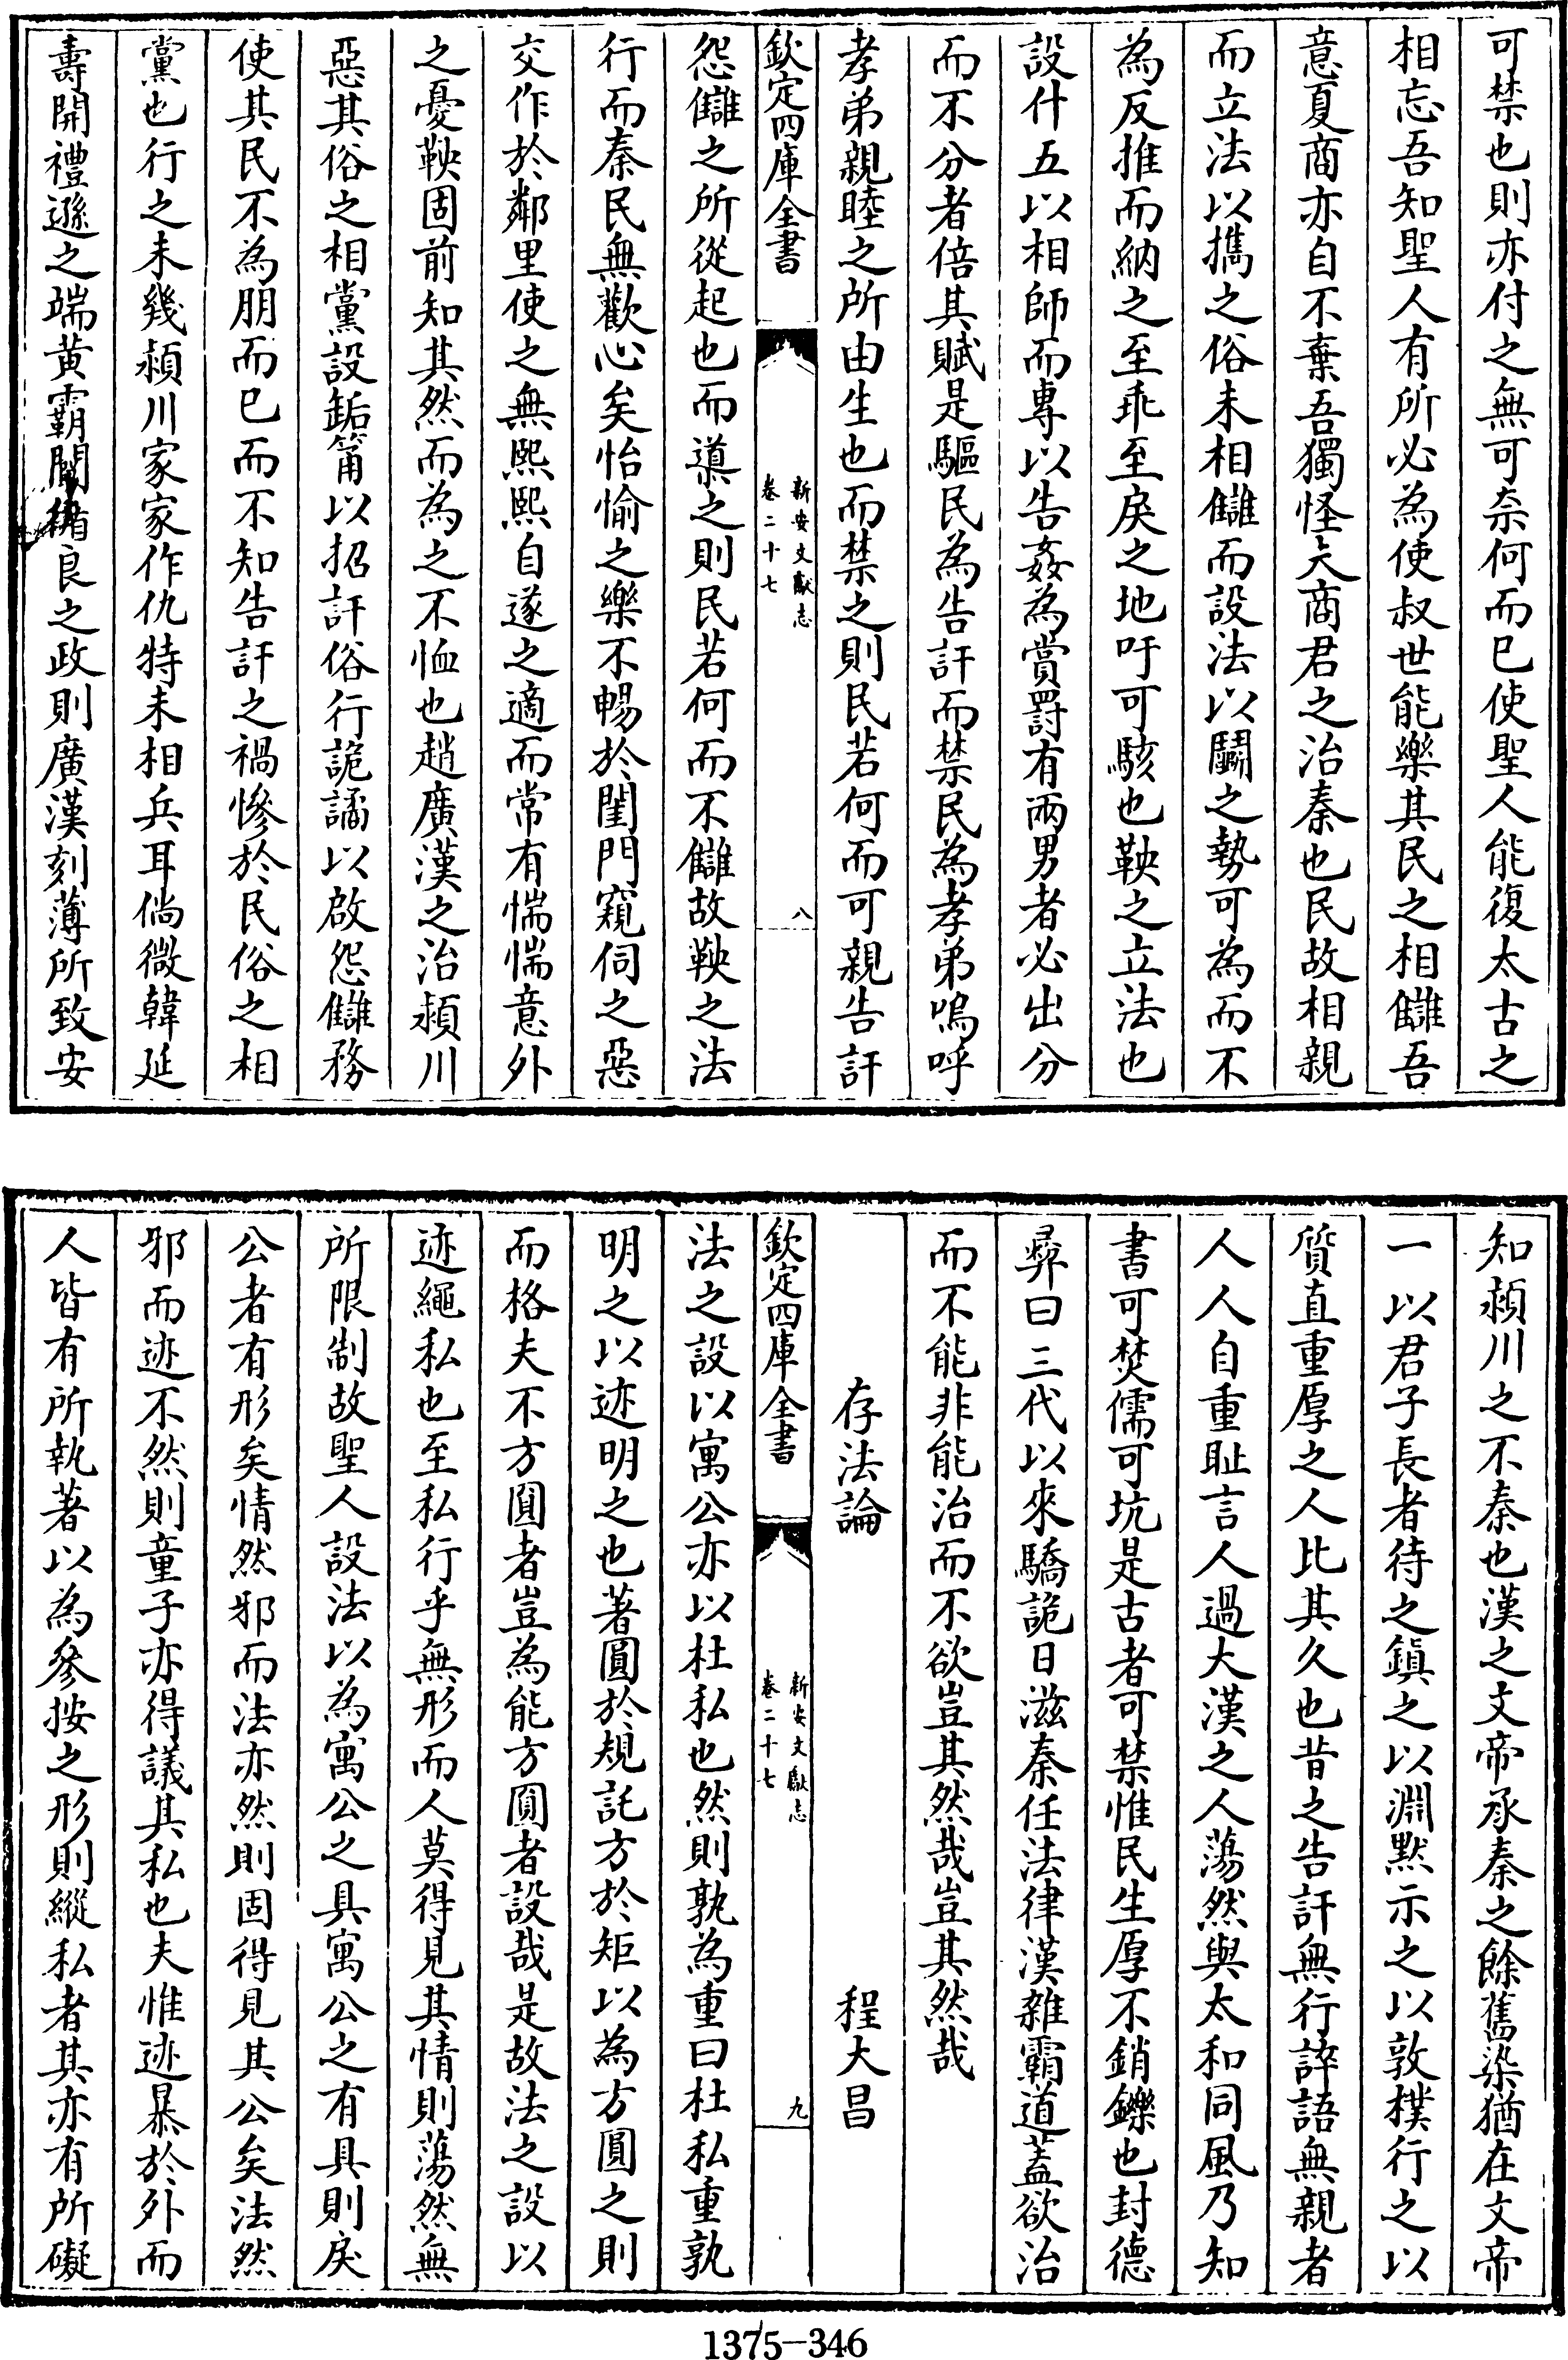 可禁也則亦付之無可奈何而已使聖人能復太古之
相忘吾知聖人有所必為使叔世能樂其民之相讎吾
意夏商亦自不棄吾獨怪夫商君之治秦也民故相親
而立法以攜之俗未相讎而設法以鬬之勢可為而不
為反推而納之至乖至戾之地吁可駭也鞅之立法也
設什五以相師而專以告姦為賞罰有兩男者必出分
而不分者倍其賦是驅民為告訐而禁民為孝弟嗚呼
孝弟親睦之所由生也而禁之則民若何而可親告訐
欽定四庫全書
新安文獻志
卷二十七
八
怨讎之所從起也而導之則民若何而不讎故鞅之法
行而秦民無歡心矣怡愉之樂不暢於閨門窺伺之惡
交作於鄰里使之無熙熙自遂之適而常有惴惴意外
之憂鞅固前知其然而為之不恤也趙廣漢之治潁川
惡其俗之相黨設缿筩以招訐俗行詭譎以啟怨讎務
使其民不為朋而已而不知告訐之禍慘於民俗之相
黨也行之未幾潁川家家作仇特未相兵耳倘微韓延
壽開禮遜之端黃霸闡循良之政則廣漢刻薄所致安
知潁川之不秦也漢之文帝承秦之餘舊染猶在文帝
一以君子長者待之鎮之以淵默示之以敦樸行之以
質直重厚之人比其久也昔之告訐無行誶語無親者
人人自重耻言人過大漢之人蕩然與太和同風乃知
書可焚儒可坑是古者可禁惟民生厚不銷鑠也封德
彞曰三代以來驕詭日滋秦任法律漢雜霸道蓋欲治
而不能非能治而不欲豈其然哉豈其然哉
存法論 程大昌
欽定四庫全書
新安文獻志
卷二十七
九
法之設以寓公亦以杜私也然則孰為重曰杜私重孰
明之以迹明之也著圓於規託方於矩以為方圓之則
而格夫不方圓者豈為能方圓者設哉是故法之設以
迹繩私也至私行乎無形而人莫得見其情則蕩然無
所限制故聖人設法以為寓公之具寓公之有具則戾
公者有形矣情然邪而法亦然則固得見其公矣法然
邪而迹不然則童子亦得議其私也夫惟迹暴於外而
人皆有所執著以為參按之形則縱私者其亦有所礙
1375-346